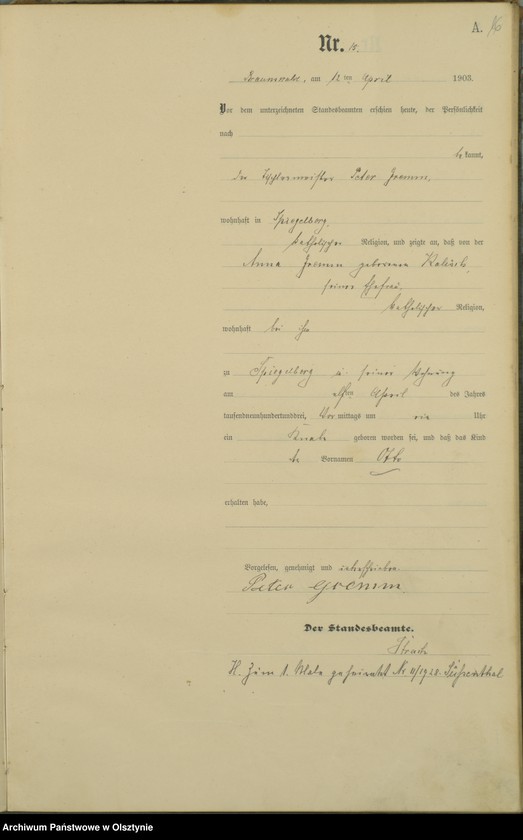 A. 16
Nr. 15.
am 12ten April 1903.
Vor dem unterzeichneten Standesbeamten erschien heute, der Persönlichkeit
nach
bekannt,
der Peter
wohnhaft in Spiegelberg,
katholischer Religion, und zeigte an, daß von der
Anna geborenen
seiner Ehefrau,
katholischer Religion,
wohnhaft bei ihm
zu Spiegelberg in seiner Wohnung
am elften April des Jahres
tausendneunhundertunddrei, Vormittags um ein Uhr
ein Knabe geboren worden sei, und daß das Kind
den Vornamen Otto
erhalten habe,
Vorgelesen, genehmigt und unterschrieben
Peter
Der Standesbeamte.
H. Zum 1. Male geheiratet Nr.
Archiwum Państwowe w Olsztynie